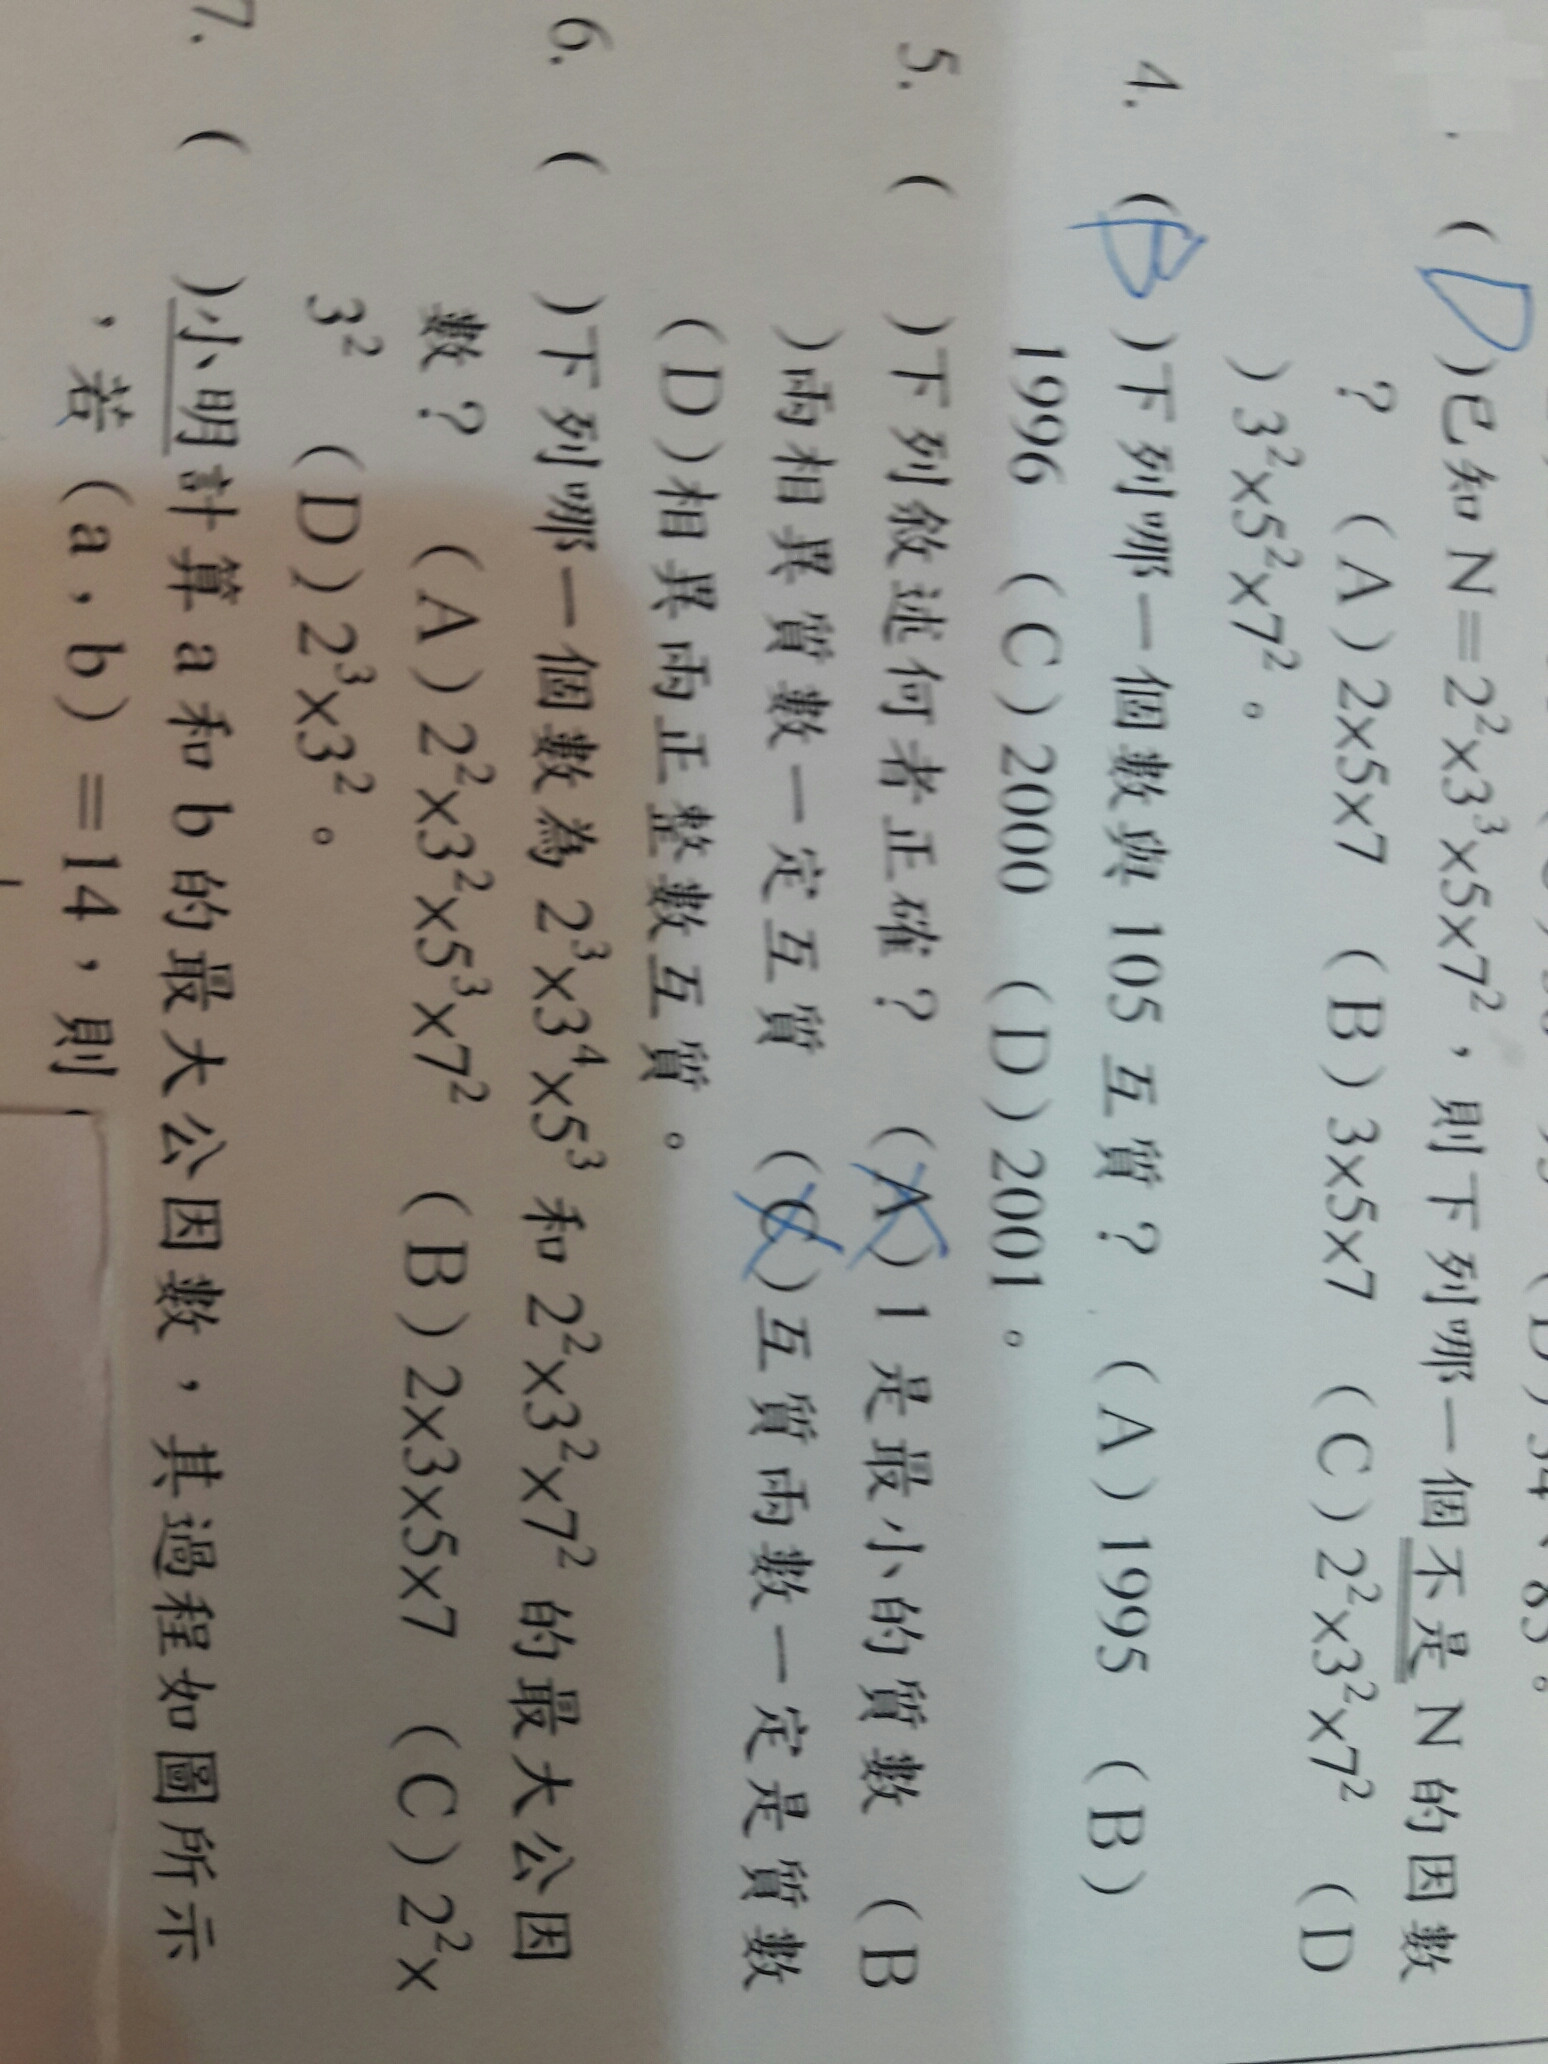 (D)已知 N=2²x3³x5x7²，則下列哪一個不是 N 的因數
？ (A)2x5x7 (B)3x5x7 (C)2²x3²x7² (D
)3²x5²x7²。
4. (B)下列哪一個數與 105 互質？ (A)1995 (B)
1996 (C)2000 (D)2001。
5. ( )下列敘述何者正確？ (A)1 是最小的質數 (B
)兩相異質數一定互質 (C)互質兩數一定是質數
(D)相異兩正整數互質。
6. ( )下列哪一個數為 2³x3⁴x5³ 和 2²x3²x7² 的最大公因
數？ (A)2²x3²x5³x7² (B)2x3x5x7 (C)2²x
3² (D)2³x3²。
7. ( )小明計算 a 和 b 的最大公因數，其過程如圖所示
，若 (a，b) =14，則